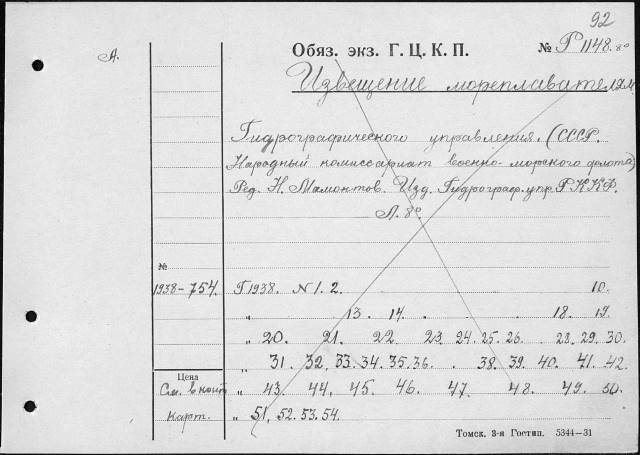 92
А.
Обяз. экз. Г. Ц. К. П. № Р 1148. 8°
Извещение мореплавателям
Гидрографического управления. (СССР.
Народный комиссариат военно-морского флота)
Ред. Н. Мамонтов. Изд. Гидрограф. упр. Р.К.К.Ф.
Л. 8°.
№
1938-754. Г 1938. N 1. 2. 10.
„ 13. 14. . . 18. 19.
„ 20. 21. 22 23. 24. 25. 26. . 28. 29. 30.
„ 31. 32. 33. 34. 35. 36. . 38. 39. 40. 41. 42.
Цена
См. в конт. „ 43. 44. 45. 46. 47. 48. 49. 50.
карт. „ 51, 52. 53. 54.
Томск. 3-я Гостип. 5344—31